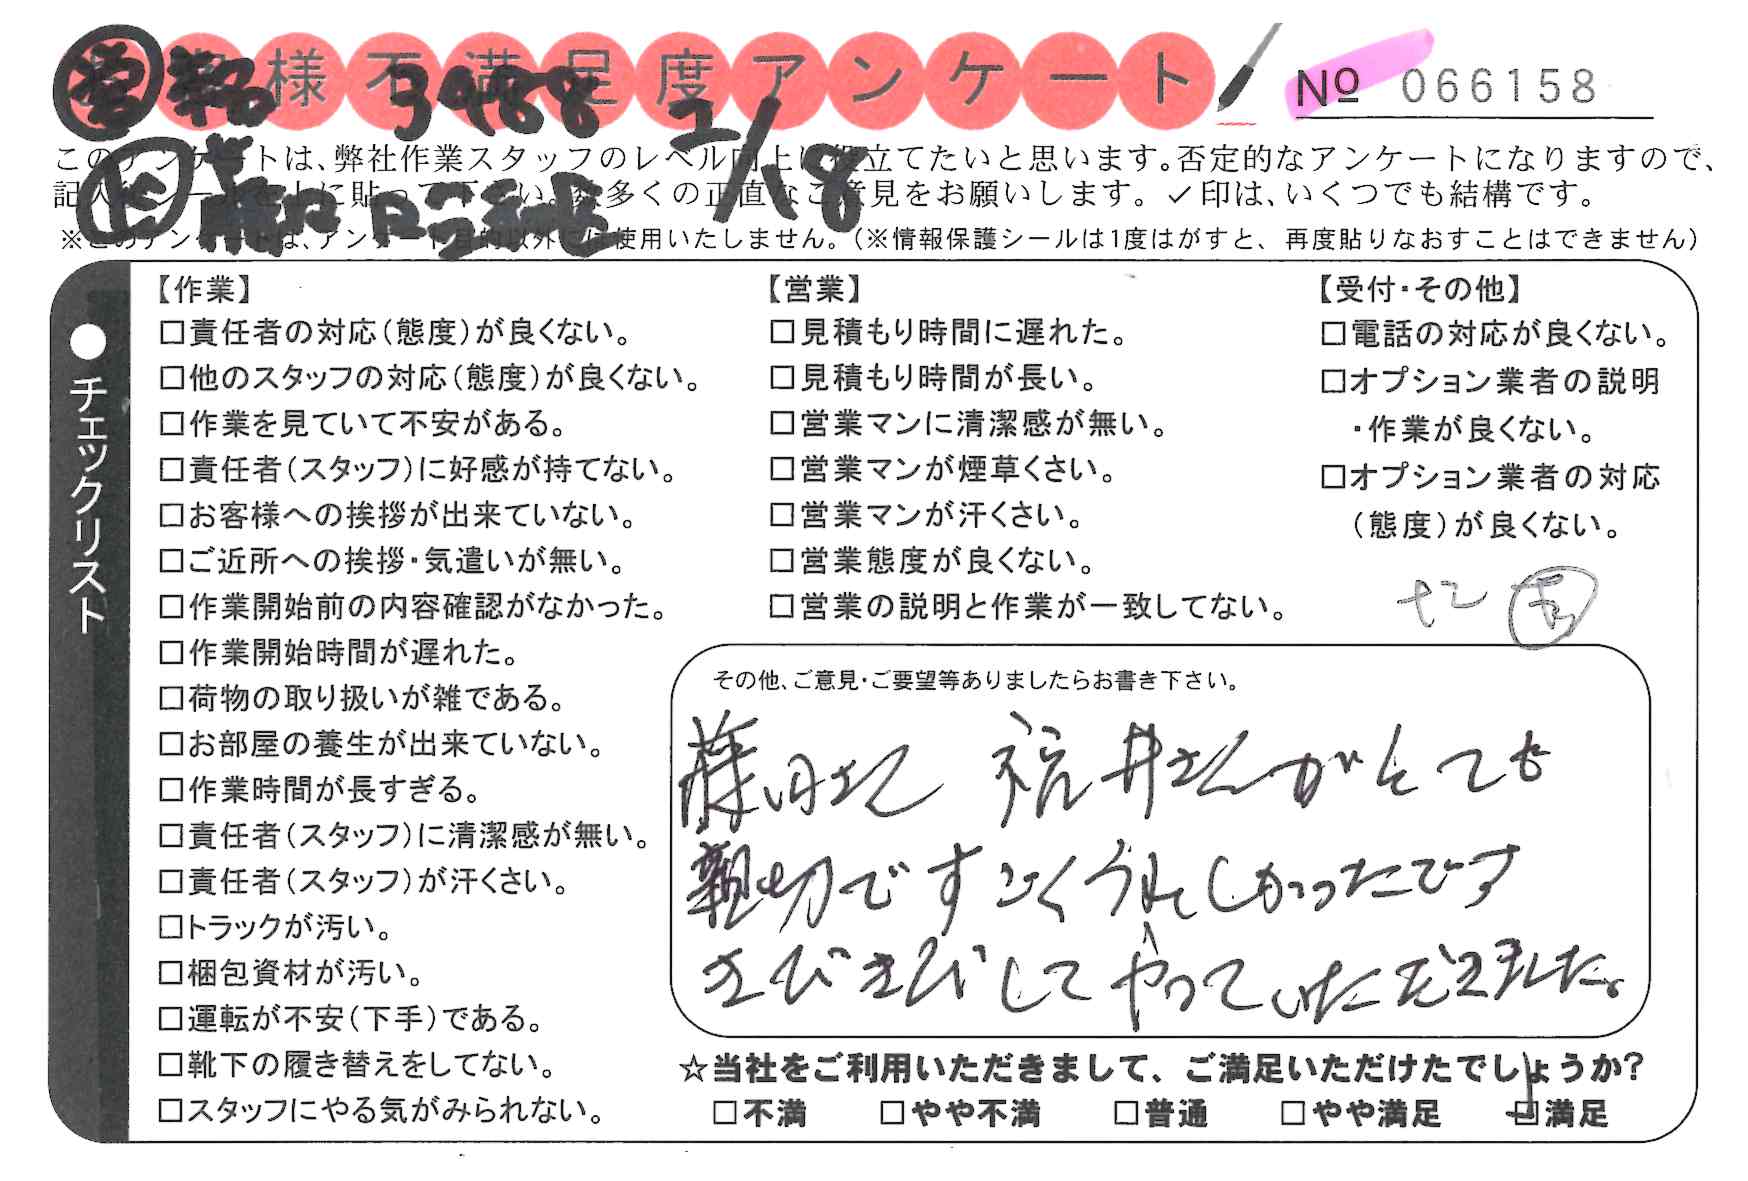 様不満足度アンケート No 066158
3988 2/18
このアンケートは、弊社作業スタッフのレベル向上に役立てたいと思います。否定的なアンケートになりますので、
記入後シールを上に貼って下さい。数多くの正直なご意見をお願いします。✓印は、いくつでも結構です。
※このアンケートは、アンケート目的以外には使用いたしません。(※情報保護シールは1度はがすと、再度貼りなおすことはできません)
●チェックリスト
【作業】
□責任者の対応(態度)が良くない。
□他のスタッフの対応(態度)が良くない。
□作業を見ていて不安がある。
□責任者(スタッフ)に好感が持てない。
□お客様への挨拶が出来ていない。
□ご近所への挨拶・気遣いが無い。
□作業開始前の内容確認がなかった。
□作業開始時間が遅れた。
□荷物の取り扱いが雑である。
□お部屋の養生が出来ていない。
□作業時間が長すぎる。
□責任者(スタッフ)に清潔感が無い。
□責任者(スタッフ)が汗くさい。
□トラックが汚い。
□梱包資材が汚い。
□運転が不安(下手)である。
□靴下の履き替えをしてない。
□スタッフにやる気がみられない。
【営業】
□見積もり時間に遅れた。
□見積もり時間が長い。
□営業マンに清潔感が無い。
□営業マンが煙草くさい。
□営業マンが汗くさい。
□営業態度が良くない。
□営業の説明と作業が一致してない。
【受付・その他】
□電話の対応が良くない。
□オプション業者の説明
・作業が良くない。
□オプション業者の対応
(態度)が良くない。
その他、ご意見・ご要望等ありましたらお書き下さい。
さん 福井さんがとても
親切ですごくうれしかったです
きびきびしてやっていただきました。
☆当社をご利用いただきまして、ご満足いただけたでしょうか?
□不満 □やや不満 □普通 □やや満足 □満足